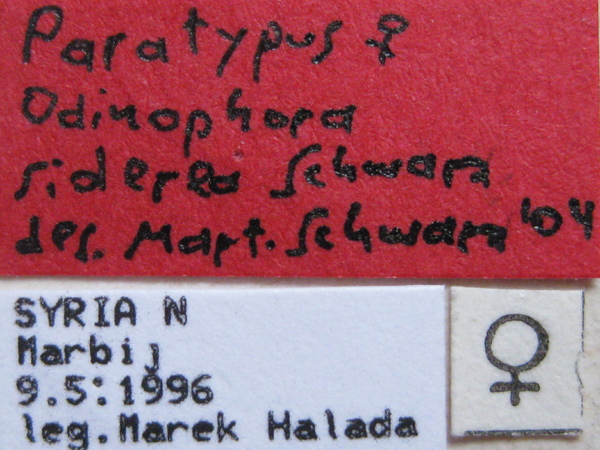 Paratypus ♀
Odinophora
siderea Schwarz
des. Mart. Schwarz '04
SYRIA N
Marbij
9.5:1996
leg. Marek Halada
♀